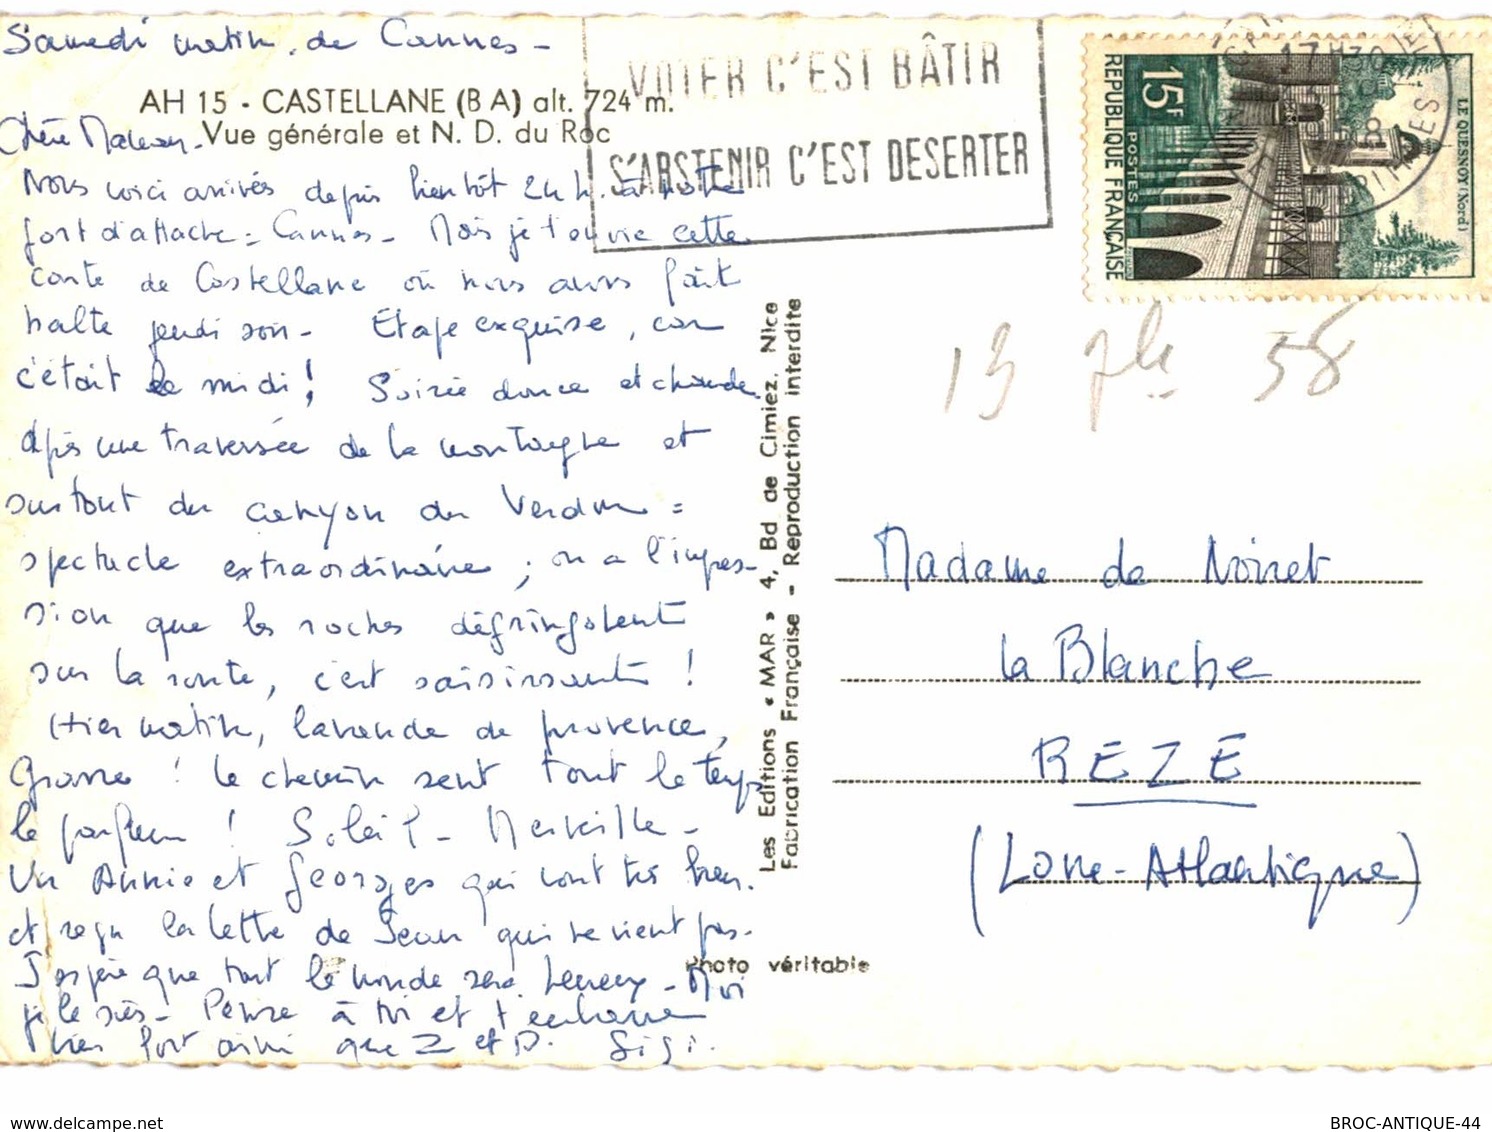 Samedi matin. de Cannes -
AH 15 - CASTELLANE (B A) alt. 724 m.
Vue générale et N. D. du Roc
Chère
Nous voici arrivés depuis bientôt 24 h. à notre
port d'attache = Cannes - Mais je t'envoie cette
carte de Castellane où nous avons fait
halte jeudi soir - Étape exquise, car
c'était le midi ! Soirée douce et chaude
après une traversée de la montagne et
surtout du canyon du Verdon =
spectacle extraordinaire ; on a l'impres-
sion que les roches dégringolent
sur la route, c'est saisissant !
Hier matin, lavande de provence,
Grasse ! le chemin sent tout le temps
le parfum ! Soleil - Merveille -
Vu Annie et Georges qui vont très bien.
et reçu la lettre de Jean qui ne vient pas.
J'espère que tout le monde sera heureux - Moi
je le suis - Pense à toi et t'embrasse
bien fort ainsi que Z et D. Gigi.
VOTER C'EST BÂTIR
S'ABSTENIR C'EST DESERTER
17H30
15F
POSTES
REPUBLIQUE FRANÇAISE
LE QUESNOY (Nord)
58
Les Editions « MAR » 4, Bd de Cimiez. Nice
Fabrication Française - Reproduction interdite
Photo véritable
Madame de Noiret
la Blanche
REZÉ
(Loire-Atlantique)
www.delcampe.net
BROC-ANTIQUE-44